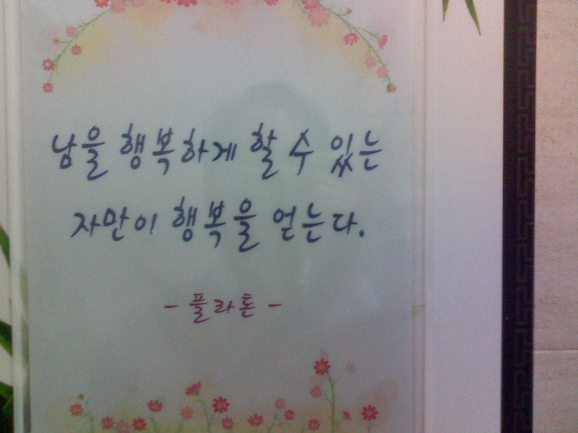 남을 행복하게 할 수 있는
자만이 행복을 얻는다.
- 플라톤 -